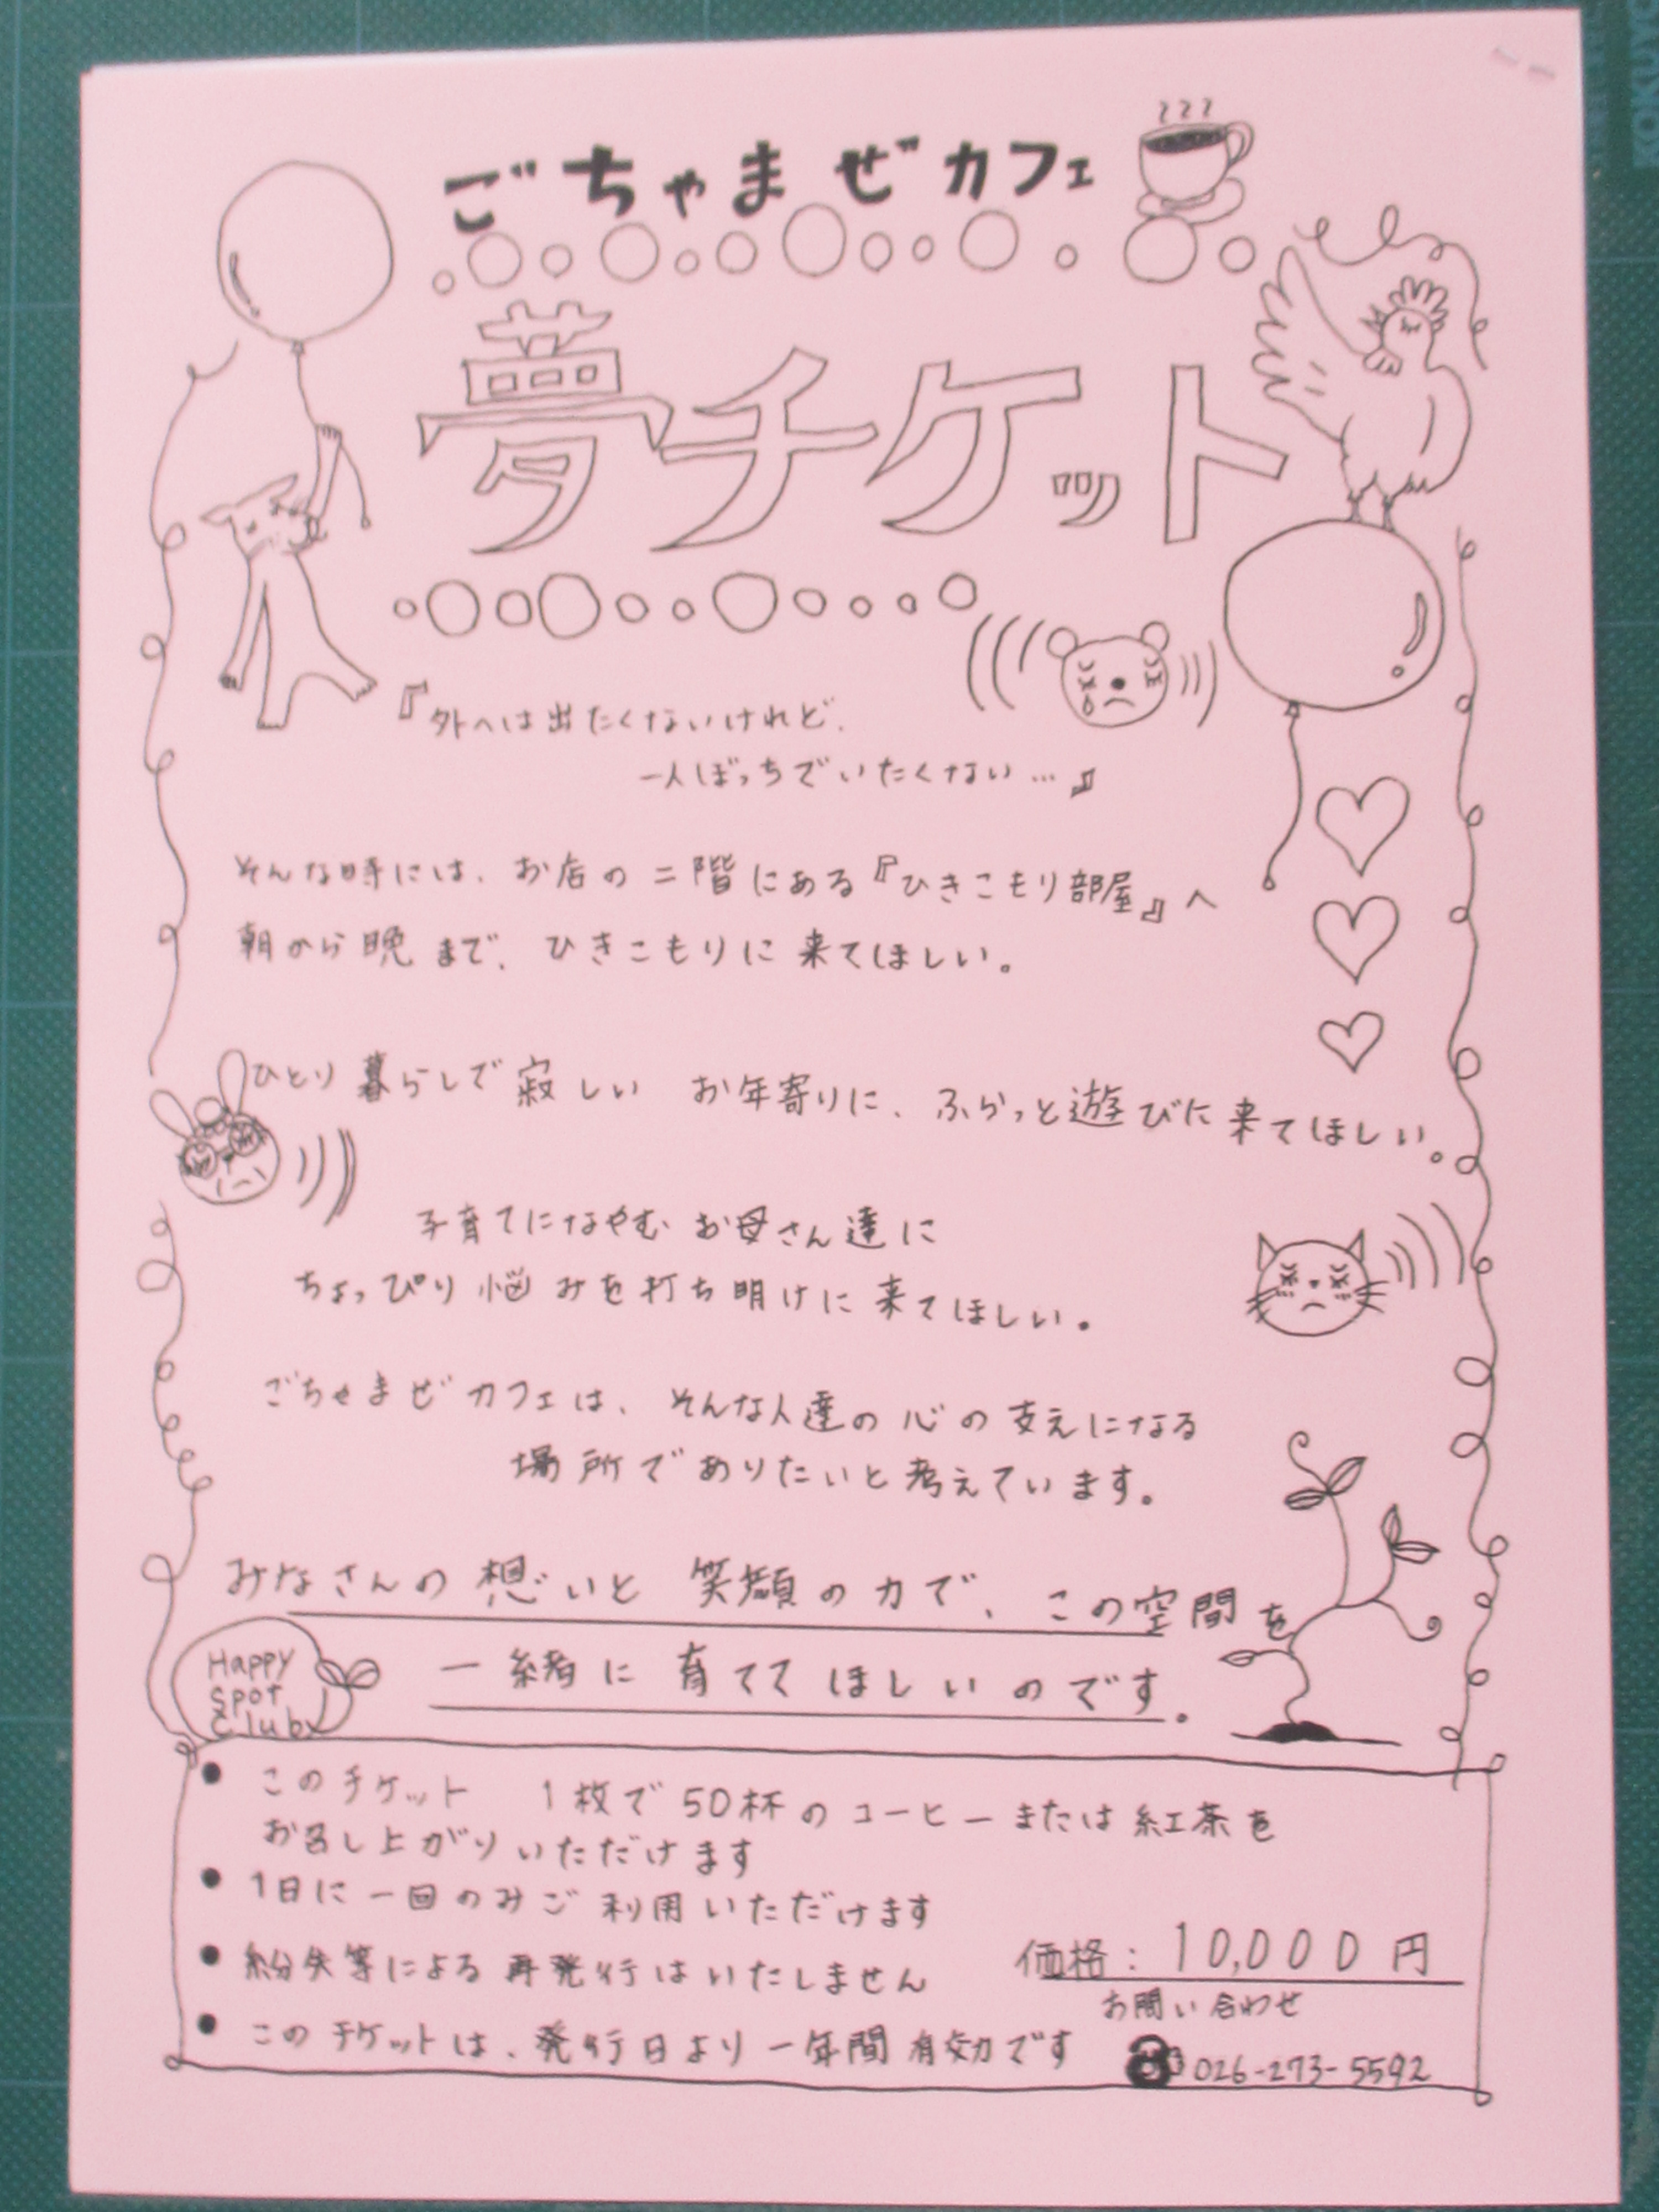 ごちゃまぜカフェ
夢チケット
『外へは出たくないけれど、
一人ぼっちでいたくない…』
そんな時には、お店の二階にある『ひきこもり部屋』へ
朝から晩まで、ひきこもりに来てほしい。
ひとり暮らしで寂しい お年寄りに、ふらっと遊びに来てほしい。
子育てになやむ お母さん達に
ちょっぴり悩みを打ち明けに来てほしい。
ごちゃまぜカフェは、そんな人達の心の支えになる
場所でありたいと考えています。
みなさんの想いと笑顔の力で、この空間を
一緒に育ててほしいのです。
Happy
Spot
Club
● このチケット 1枚で50杯のコーヒーまたは紅茶を
お召し上がりいただけます
● 1日に一回のみご利用いただけます
● 紛失等による再発行はいたしません
● このチケットは、発行日より一年間有効です
価格：10,000円
お問い合わせ
026-273-5592